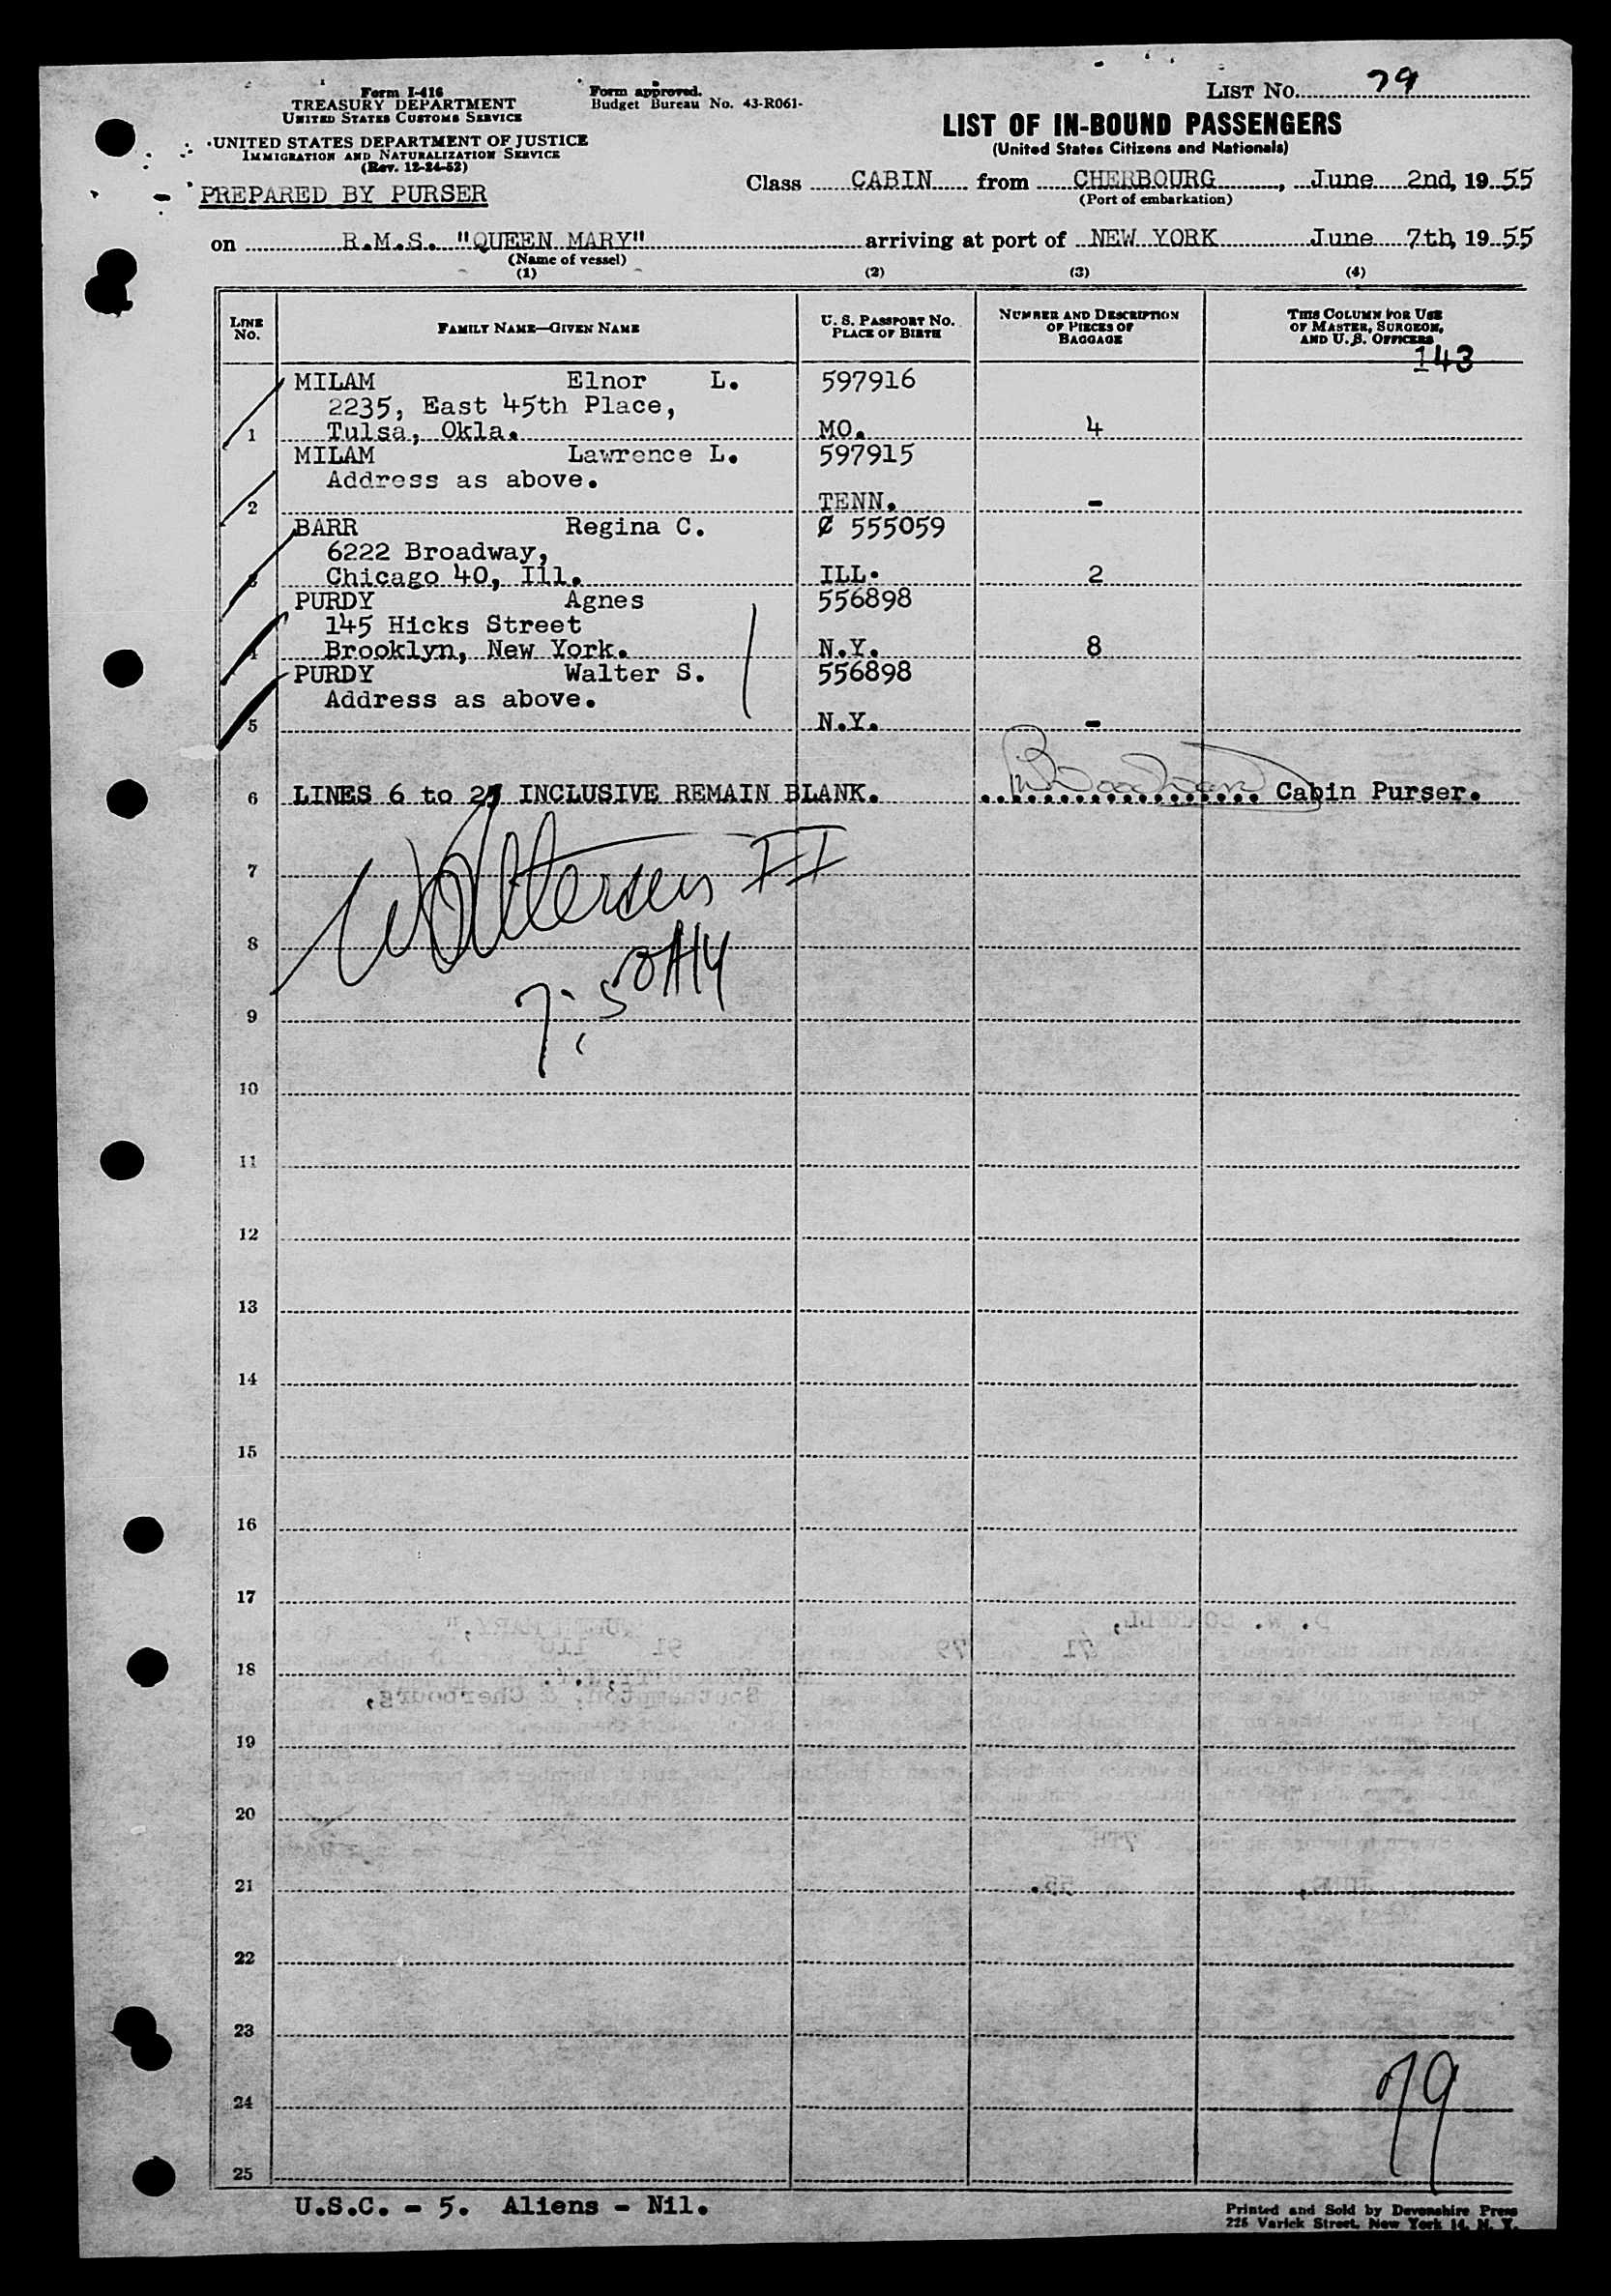 Form I-416
TREASURY DEPARTMENT
UNITED STATES CUSTOMS SERVICE
UNITED STATES DEPARTMENT OF JUSTICE
IMMIGRATION AND NATURALIZATION SERVICE
(Rev. 12-24-52)
PREPARED BY PURSER
Form approved.
Budget Bureau No. 43-R061-
LIST No. 79
LIST OF IN-BOUND PASSENGERS
(United States Citizens and Nationals)
Class CABIN from CHERBOURG, June 2nd, 1955
(Port of embarkation)
on R.M.S. "QUEEN MARY" arriving at port of NEW YORK June 7th, 1955
(Name of vessel)
(1) (2) (3) (4)
LINE No. FAMILY NAME—GIVEN NAME U. S. PASSPORT NO. PLACE OF BIRTH NUMBER AND DESCRIPTION OF PIECES OF BAGGAGE THIS COLUMN FOR USE OF MASTER, SURGEON, AND U. S. OFFICERS
143
MILAM Elnor L. 597916
2235, East 45th Place,
1 Tulsa, Okla. MO. 4
MILAM Lawrence L. 597915
Address as above.
2 TENN. -
BARR Regina C. ¢ 555059
6222 Broadway,
3 Chicago 40, Ill. ILL. 2
PURDY Agnes 556898
145 Hicks Street
4 Brooklyn, New York. N.Y. 8
PURDY Walter S. 556898
Address as above.
5 N.Y. -
6 LINES 6 to 25 INCLUSIVE REMAIN BLANK. Cabin Purser.
7
II
8
7:50AM
9
10
11
12
13
14
15
16
17
D. W. SORRELL,
"QUEEN MARY,"
71 79 91 110
18
Southampton, & Cherbourg,
19
20
7TH
21
JUNE, 55.
22
23
24
79
25
U.S.C. - 5. Aliens - Nil.
Printed and Sold by Devonshire Press
225 Varick Street, New York 14, N. Y.